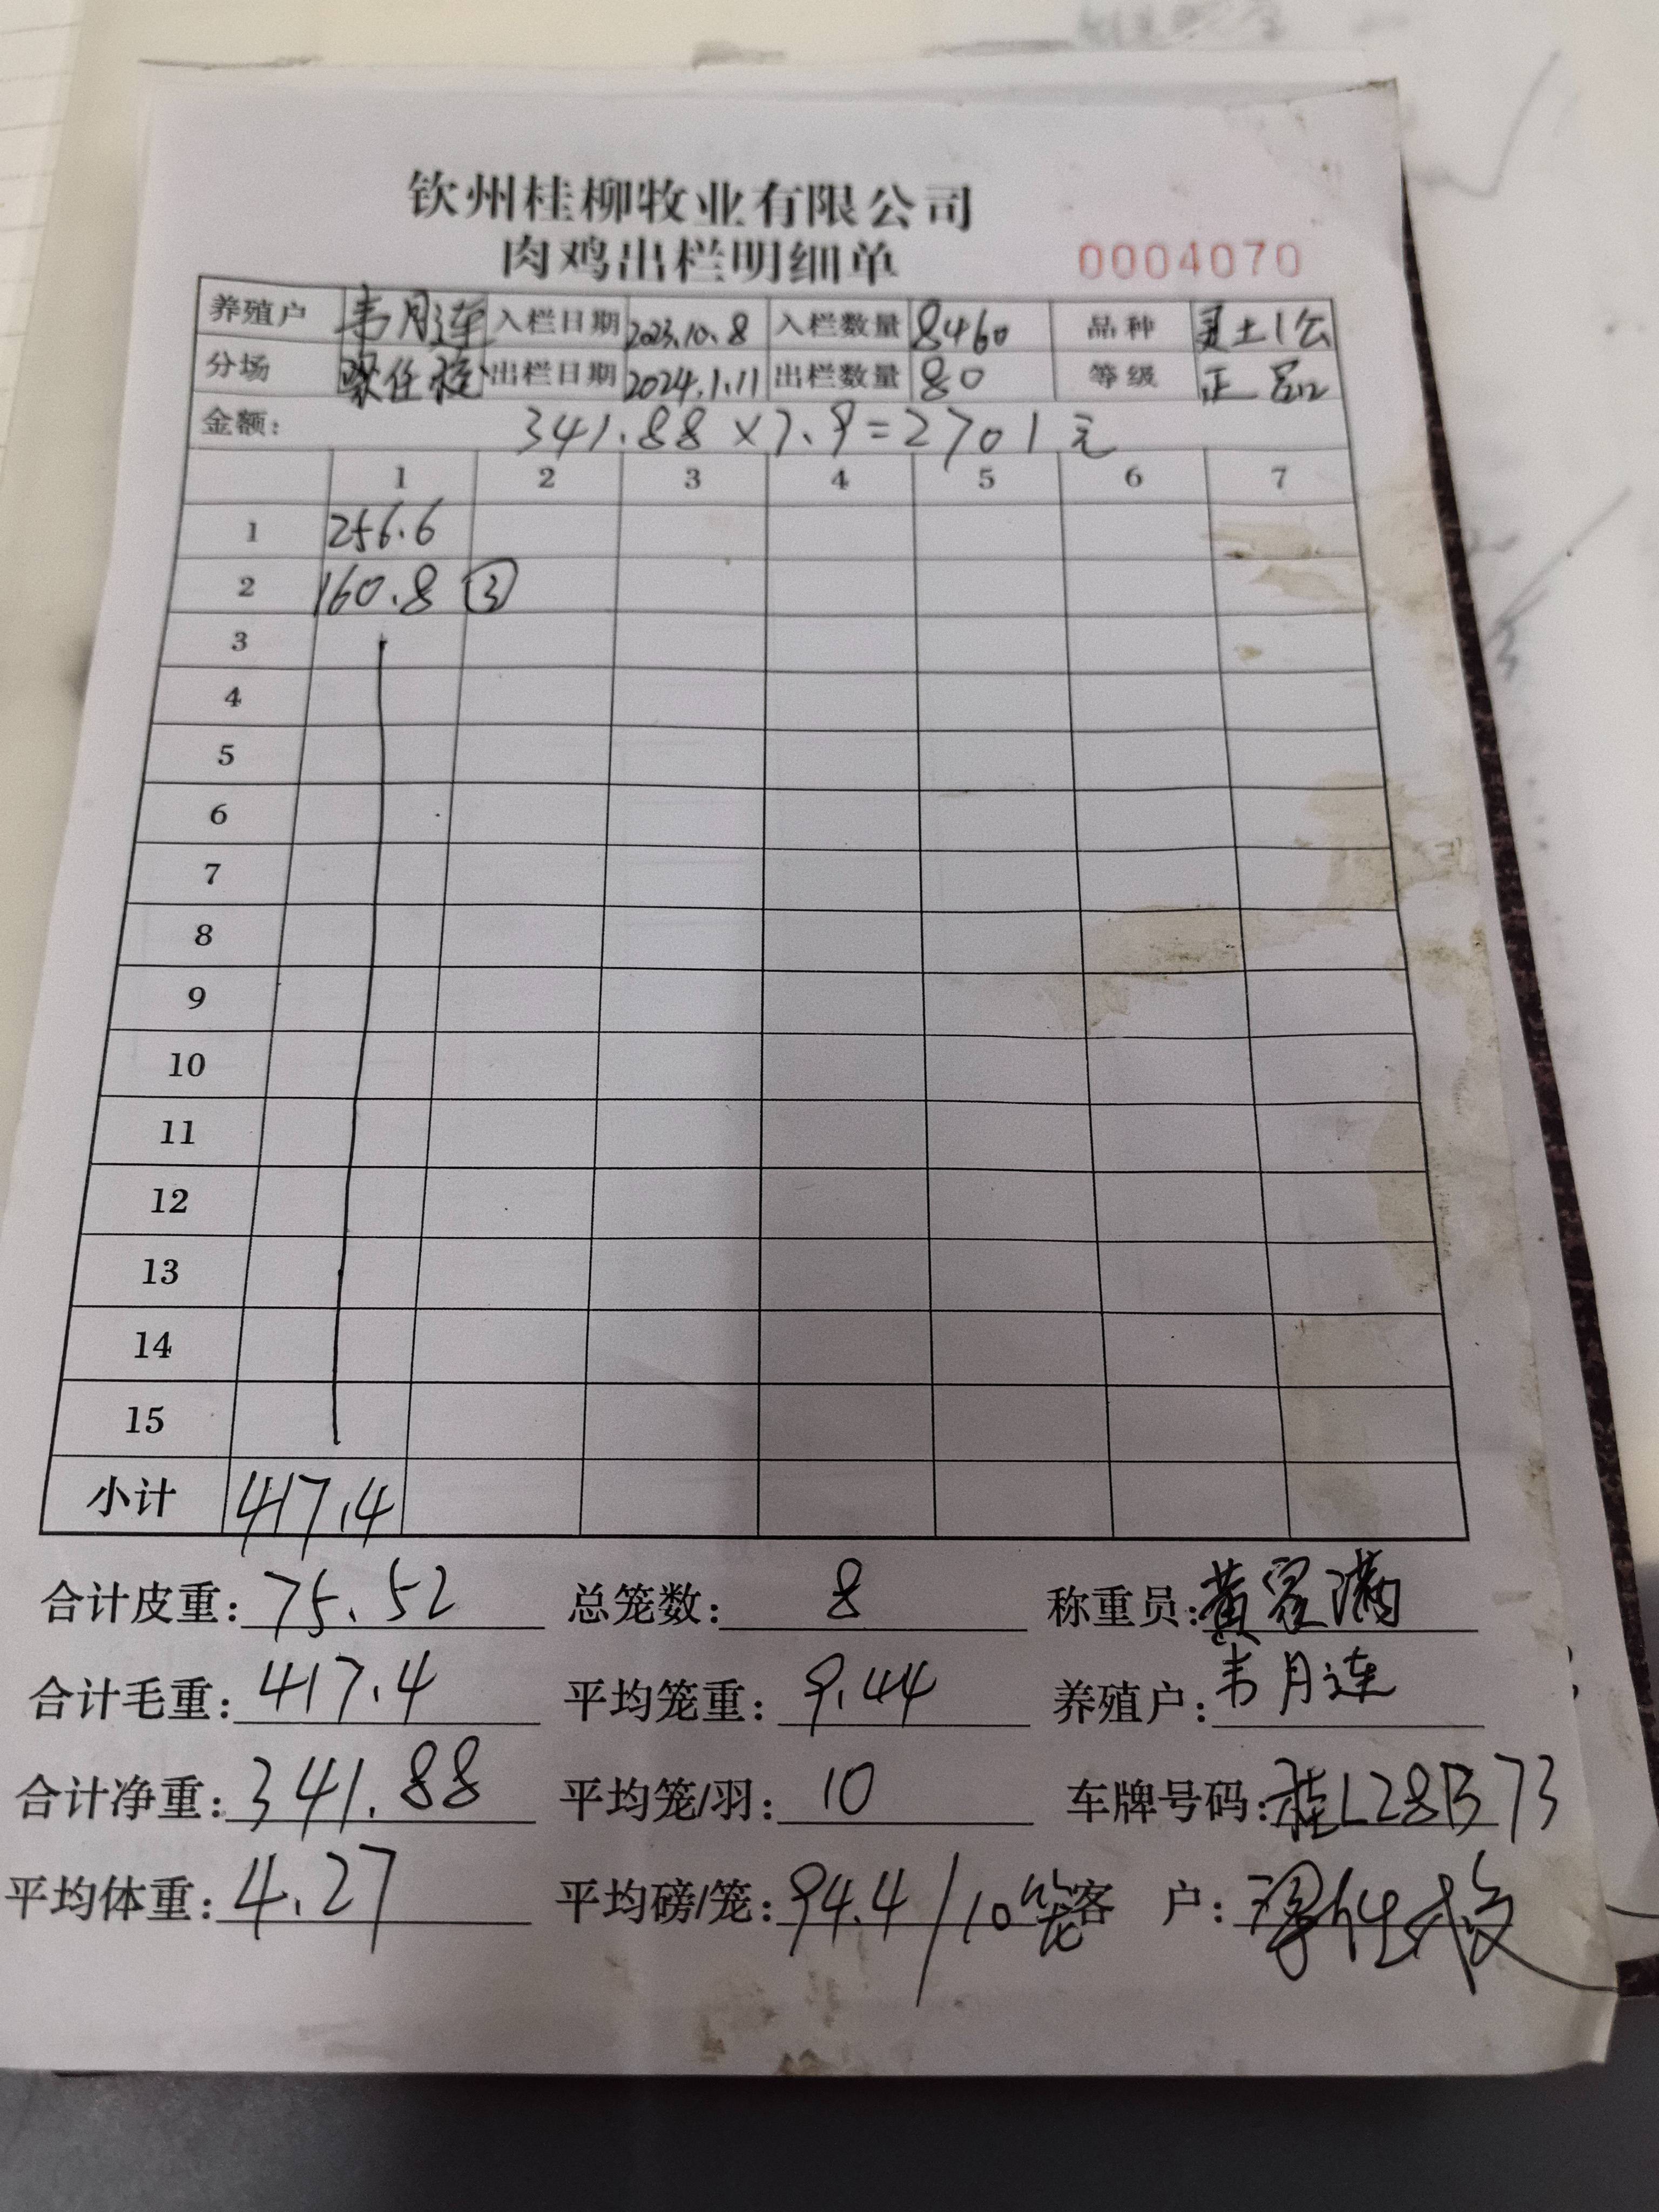 钦州桂柳牧业有限公司
肉鸡出栏明细单 0004070
养殖户 韦月连 入栏日期 2023.10.8 入栏数量 8460 品种 灵土1公
分场 出栏日期 2024.1.11 出栏数量 80 等级 正品
金额: 341.88×7.9=2701元
1 2 3 4 5 6 7
1 256.6
2 160.8 ③
3
4
5
6
7
8
9
10
11
12
13
14
15
小计 417.4
合计皮重: 75.52 总笼数: 8 称重员: 黄 满
合计毛重: 417.4 平均笼重: 9.44 养殖户: 韦月连
合计净重: 341.88 平均笼/羽: 10 车牌号码: 桂L28B73
平均体重: 4.27 平均磅/笼: 94.4/10笼 客 户: